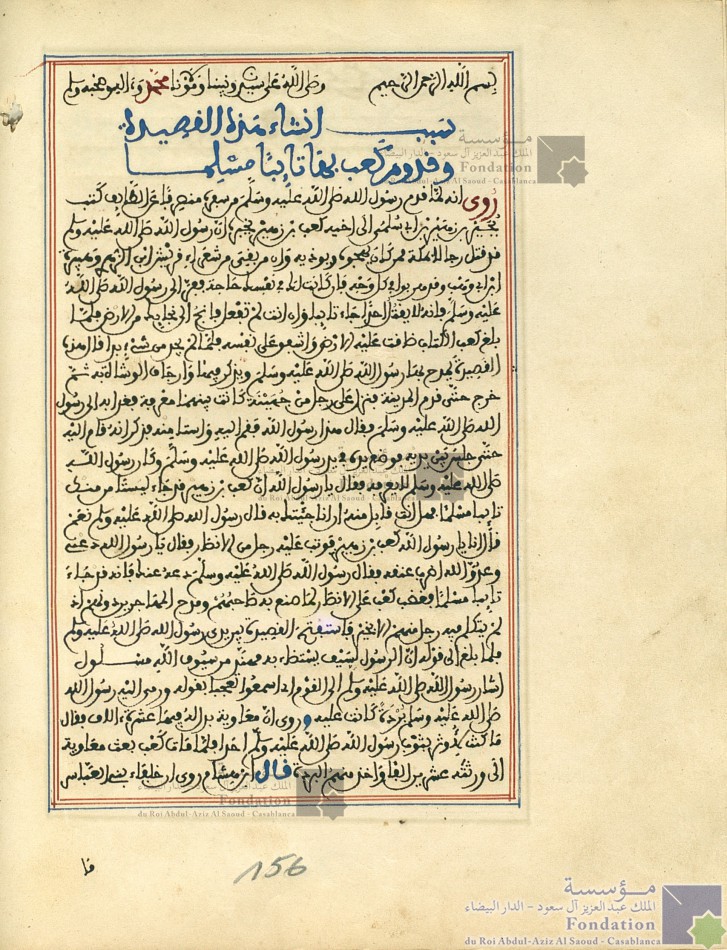 بسم الله الرحمن الرحيم وصلى الله على سيدنا ونبينا ومولانا محمد وءاله وصحبه وسلم
سبب انشاء هذه القصيدة
وقدوم كعب بها تائبا مسلما
روي انه لما قدم رسول الله صلى الله عليه وسلم من منصرفه عن الطائف كتب
بجير بن زهير بن ابي سلمى الى اخيه كعب بن زهير يخبره ان رسول الله صلى الله عليه وسلم
قد قتل رجالا بمكة ممن كان يهجوه ويوذيه وان من بقي من شعراء قريش ابن الزبعرى وهبيرة
ابن ابي وهب قد هربوا في كل وجه فان كانت لك في نفسك حاجة فطر الى رسول الله صلى الله
عليه وسلم فانه لا يقتل احدا جاء تائبا وان انت لم تفعل فانج الى نجائك من الارض فلما
بلغ كعب الكتاب ضاقت عليه الارض واشفق على نفسه فلما لم يجد من شيء بدا قال هذه
القصيدة يمدح بها رسول الله صلى الله عليه وسلم ويذكر فيها وارجاف الوشاة به ثم
خرج حتى قدم المدينة فنزل على رجل من جهينة كانت بينهما معرفة فغدا به الى رسول
الله صلى الله عليه وسلم فقال هذا رسول الله فقم اليه واستامنه فذكر انه قام اليه
حتى جلس بين يديه فوضع يده في يد رسول الله صلى الله عليه وسلم وكان رسول الله
صلى الله عليه وسلم لا يعرفه فقال يا رسول الله ان كعب بن زهير قد جاء ليستامن منك
تائبا مسلما فهل انت قابل منه ان انا جئتك به قال رسول الله صلى الله عليه وسلم نعم
قال انا يا رسول الله كعب بن زهير فوثب عليه رجل من الانصار فقال يا رسول الله دعني
وعدو الله اضرب عنقه فقال رسول الله صلى الله عليه وسلم دعه عنك فانه قد جاء
تائبا مسلما فغضب كعب على الانصار لما صنع به صاحبهم ومدح المهاجرين دونهم اذ
لم يتكلم فيه رجل منهم الا بخير فاستفتح القصيدة بين يدي رسول الله صلى الله عليه وسلم
فلما بلغ الى قوله ان الرسول لسيف يستضاء به مهند من سيوف الله مسلول
اشار رسول الله صلى الله عليه وسلم الى القوم ان اسمعوا تعجبا بقوله ورمى اليه رسول الله
صلى الله عليه وسلم بردة كانت عليه وروي ان معاوية بذل له فيها عشرة الاف فقال
ما كنت لاوثر بثوب رسول الله صلى الله عليه وسلم احدا فلما مات كعب بعث معاوية
الى ورثته عشرين الفا واخذ منهم البردة قال ابن هشام روي ان خلفاء بني العباس
فا
156
مؤسسة
الملك عبد العزيز آل سعود - الدار البيضاء
Fondation
du Roi Abdul-Aziz Al Saoud - Casablanca